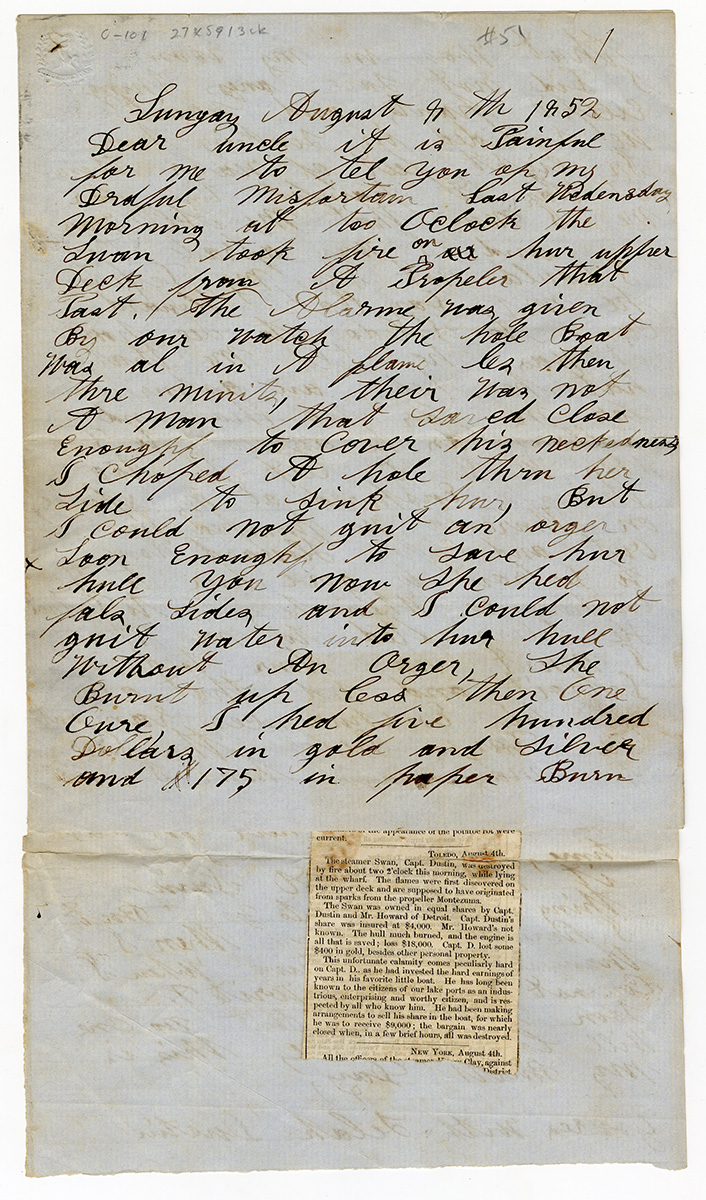 C-101 27X5913ck
#51
1
Sunyay August 8 th 1852
Dear uncle it is Painful
for me to tel you of my
Dradful Misfortain Last Wedensday
Morning at too Oclock the
Swan took fire on hur upper
Deck from A Propeler that
Past. The Alarme was given
By our watch the hole Boat
Was al in A flame les then
thre minits, their was not
A man that saved Close
Enoughf to Cover his neckedness
I Choped A hole thru her
Side to sink hur, But
I could not guit an orger
x Soon Enoughf to save hur
hull You Now She hed
fals Sides and I Could not
guit water into hur hull
Without An Orger, She
Burnt up less then One
Oure, I hed five hundred
Dollars in gold and Silver
and $175 in paper Burn
of the appearance of the potatoe rot were
current.
TOLEDO, August 4th.
The steamer Swan, Capt. Dustin, was destroyed
by fire about two 2'clock this morning, while lying
at the wharf. The flames were first discovered on
the upper deck and are supposed to have originated
from sparks from the propeller Montezuma.
The Swan was owned in equal shares by Capt.
Dustin and Mr. Howard of Detroit. Capt. Dustin's
share was insured at $4,000. Mr. Howard's not
known. The hull much burned, and the engine is
all that is saved; loss $18,000. Capt. D. lost some
$400 in gold, besides other personal property.
This unfortunate calamity comes peculiarly hard
on Capt. D., as he had invested the hard earnings of
years in his favorite little boat. He has long been
known to the citizens of our lake ports as an indus-
trious, enterprising and worthy citizen, and is res-
pected by all who know him. He had been making
arrangements to sell his share in the boat, for which
he was to receive $9,000; the bargain was nearly
closed when, in a few brief hours, all was destroyed.
NEW YORK, August 4th.
All the officers of the steamer Henry Clay, against
District